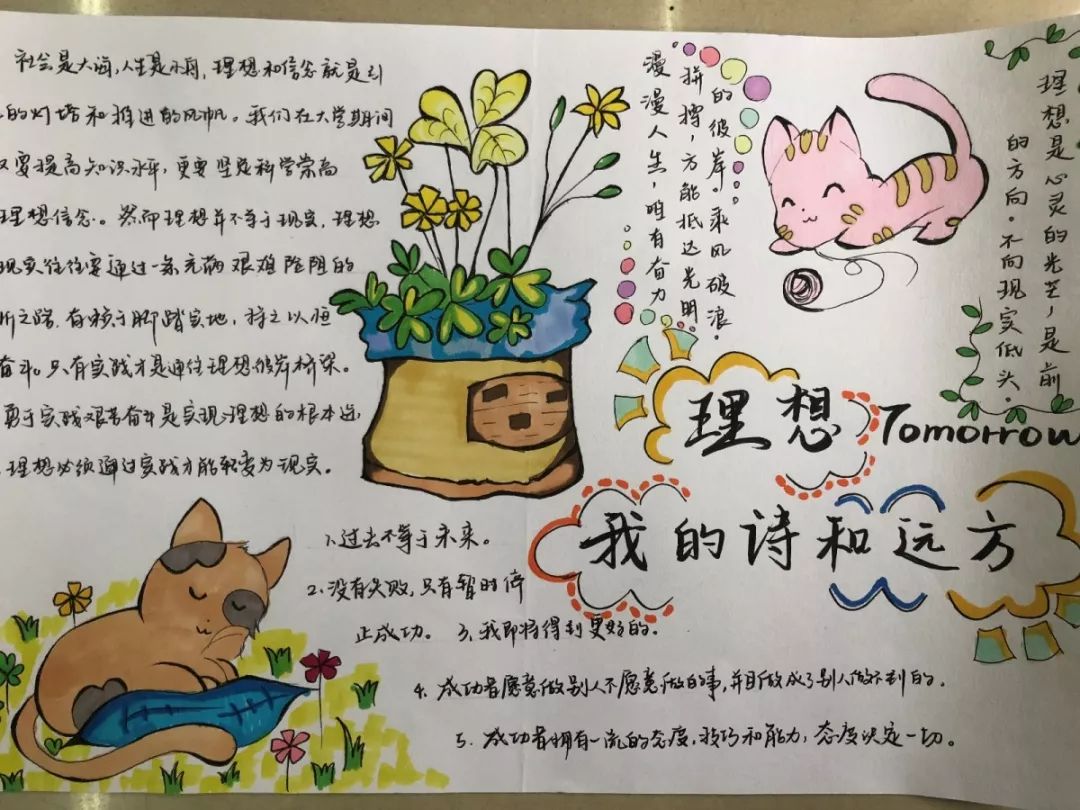 社会是大海，人生是小舟，理想和信念就是引
的灯塔和推进的风帆。我们在大学期间
要提高知识水平，更要坚定科学崇高
理想信念。然而理想并不等于现实，理想
现实往往要通过一条充满艰难险阻的
之路，有赖于脚踏实地，持之以恒
奋斗。只有实践才是通往理想彼岸桥梁。
勇于实践艰苦奋斗是实现理想的根本途
理想必须通过实践才能转变为现实。
漫漫人生，唯有奋力
拼搏，方能抵达光明
的彼岸。乘风破浪。
理想是心灵的光芒，是前
的方向。不向现实低头。
理想 Tomorrow
我的诗和远方
1、过去不等于未来。
2、没有失败，只有暂时停
止成功。 3、我即将得到更好的。
4、成功者愿意做别人不愿意做的事，并且做成了别人做不到的。
5、成功者拥有一流的态度，技巧和能力，态度决定一切。